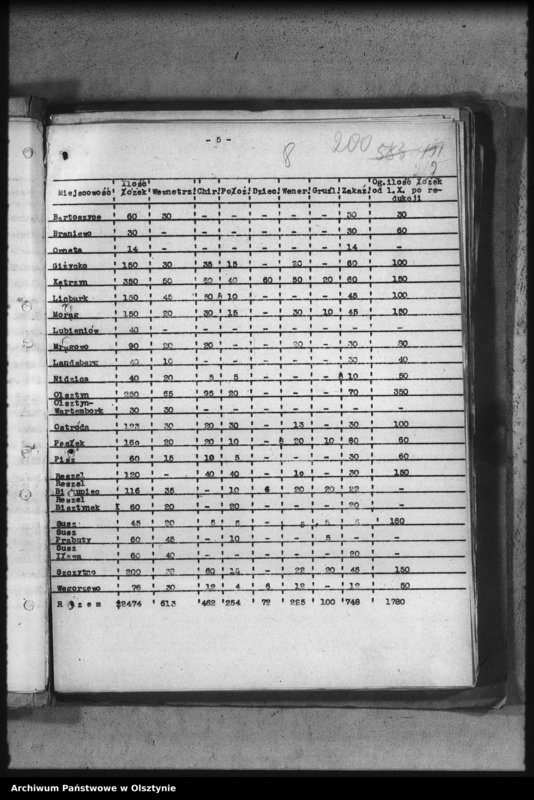 - 5 -
8
200
Miejscowość Ilość łóżek Wewnętrz. Chir. Położ. Dziec. Wener. Gruźl. Zakaź. Og.ilość łóżek od 1.X. po redukcji
Bartoszyce 60 30 - - - - - 30 30
Braniewo 30 - - - - - - 30 60
Orneta 14 - - - - - - 14 -
Giżycko 150 30 35 15 - 20 - 60 100
Kętrzyn 350 50 60 40 60 50 20 60 150
Licbark 150 45 50 10 - - - 45 100
Morąg 150 20 30 15 - 30 10 45 150
Lubieniów 40 - - - - - - - -
Mrągowo 90 20 20 - - 20 - 30 80
Landsberg 40 10 - - - - - 30 40
Nidzica 40 20 5 5 - - - 10 50
Olsztyn 250 65 95 20 - - - 70 350
Olsztyn-
Wartembork 30 30 - - - - - - -
Ostróda 123 30 20 30 - 13 - 30 100
Pasłek 160 20 20 10 - 20 10 60 60
Pisz 60 15 10 5 - - - 30 60
Reszel 120 - 40 40 - 10 - 30 150
Reszel
Biskupiec 116 35 - 10 6 20 20 22 -
Reszel
Bisztynek 60 20 - 20 - - - 20 -
Susz 45 20 5 5 - 5 5 5 160
Susz
Prabuty 60 45 - 10 - - 5 - -
Susz
Iława 60 40 - - - - - 20 -
Szczytno 200 60 14 - 22 20 45 150
Węgorzewo 76 30 12 4 6 12 - 12 50
Razem 22474 613 462 254 72 225 100 748 1780
Archiwum Państwowe w Olsztynie